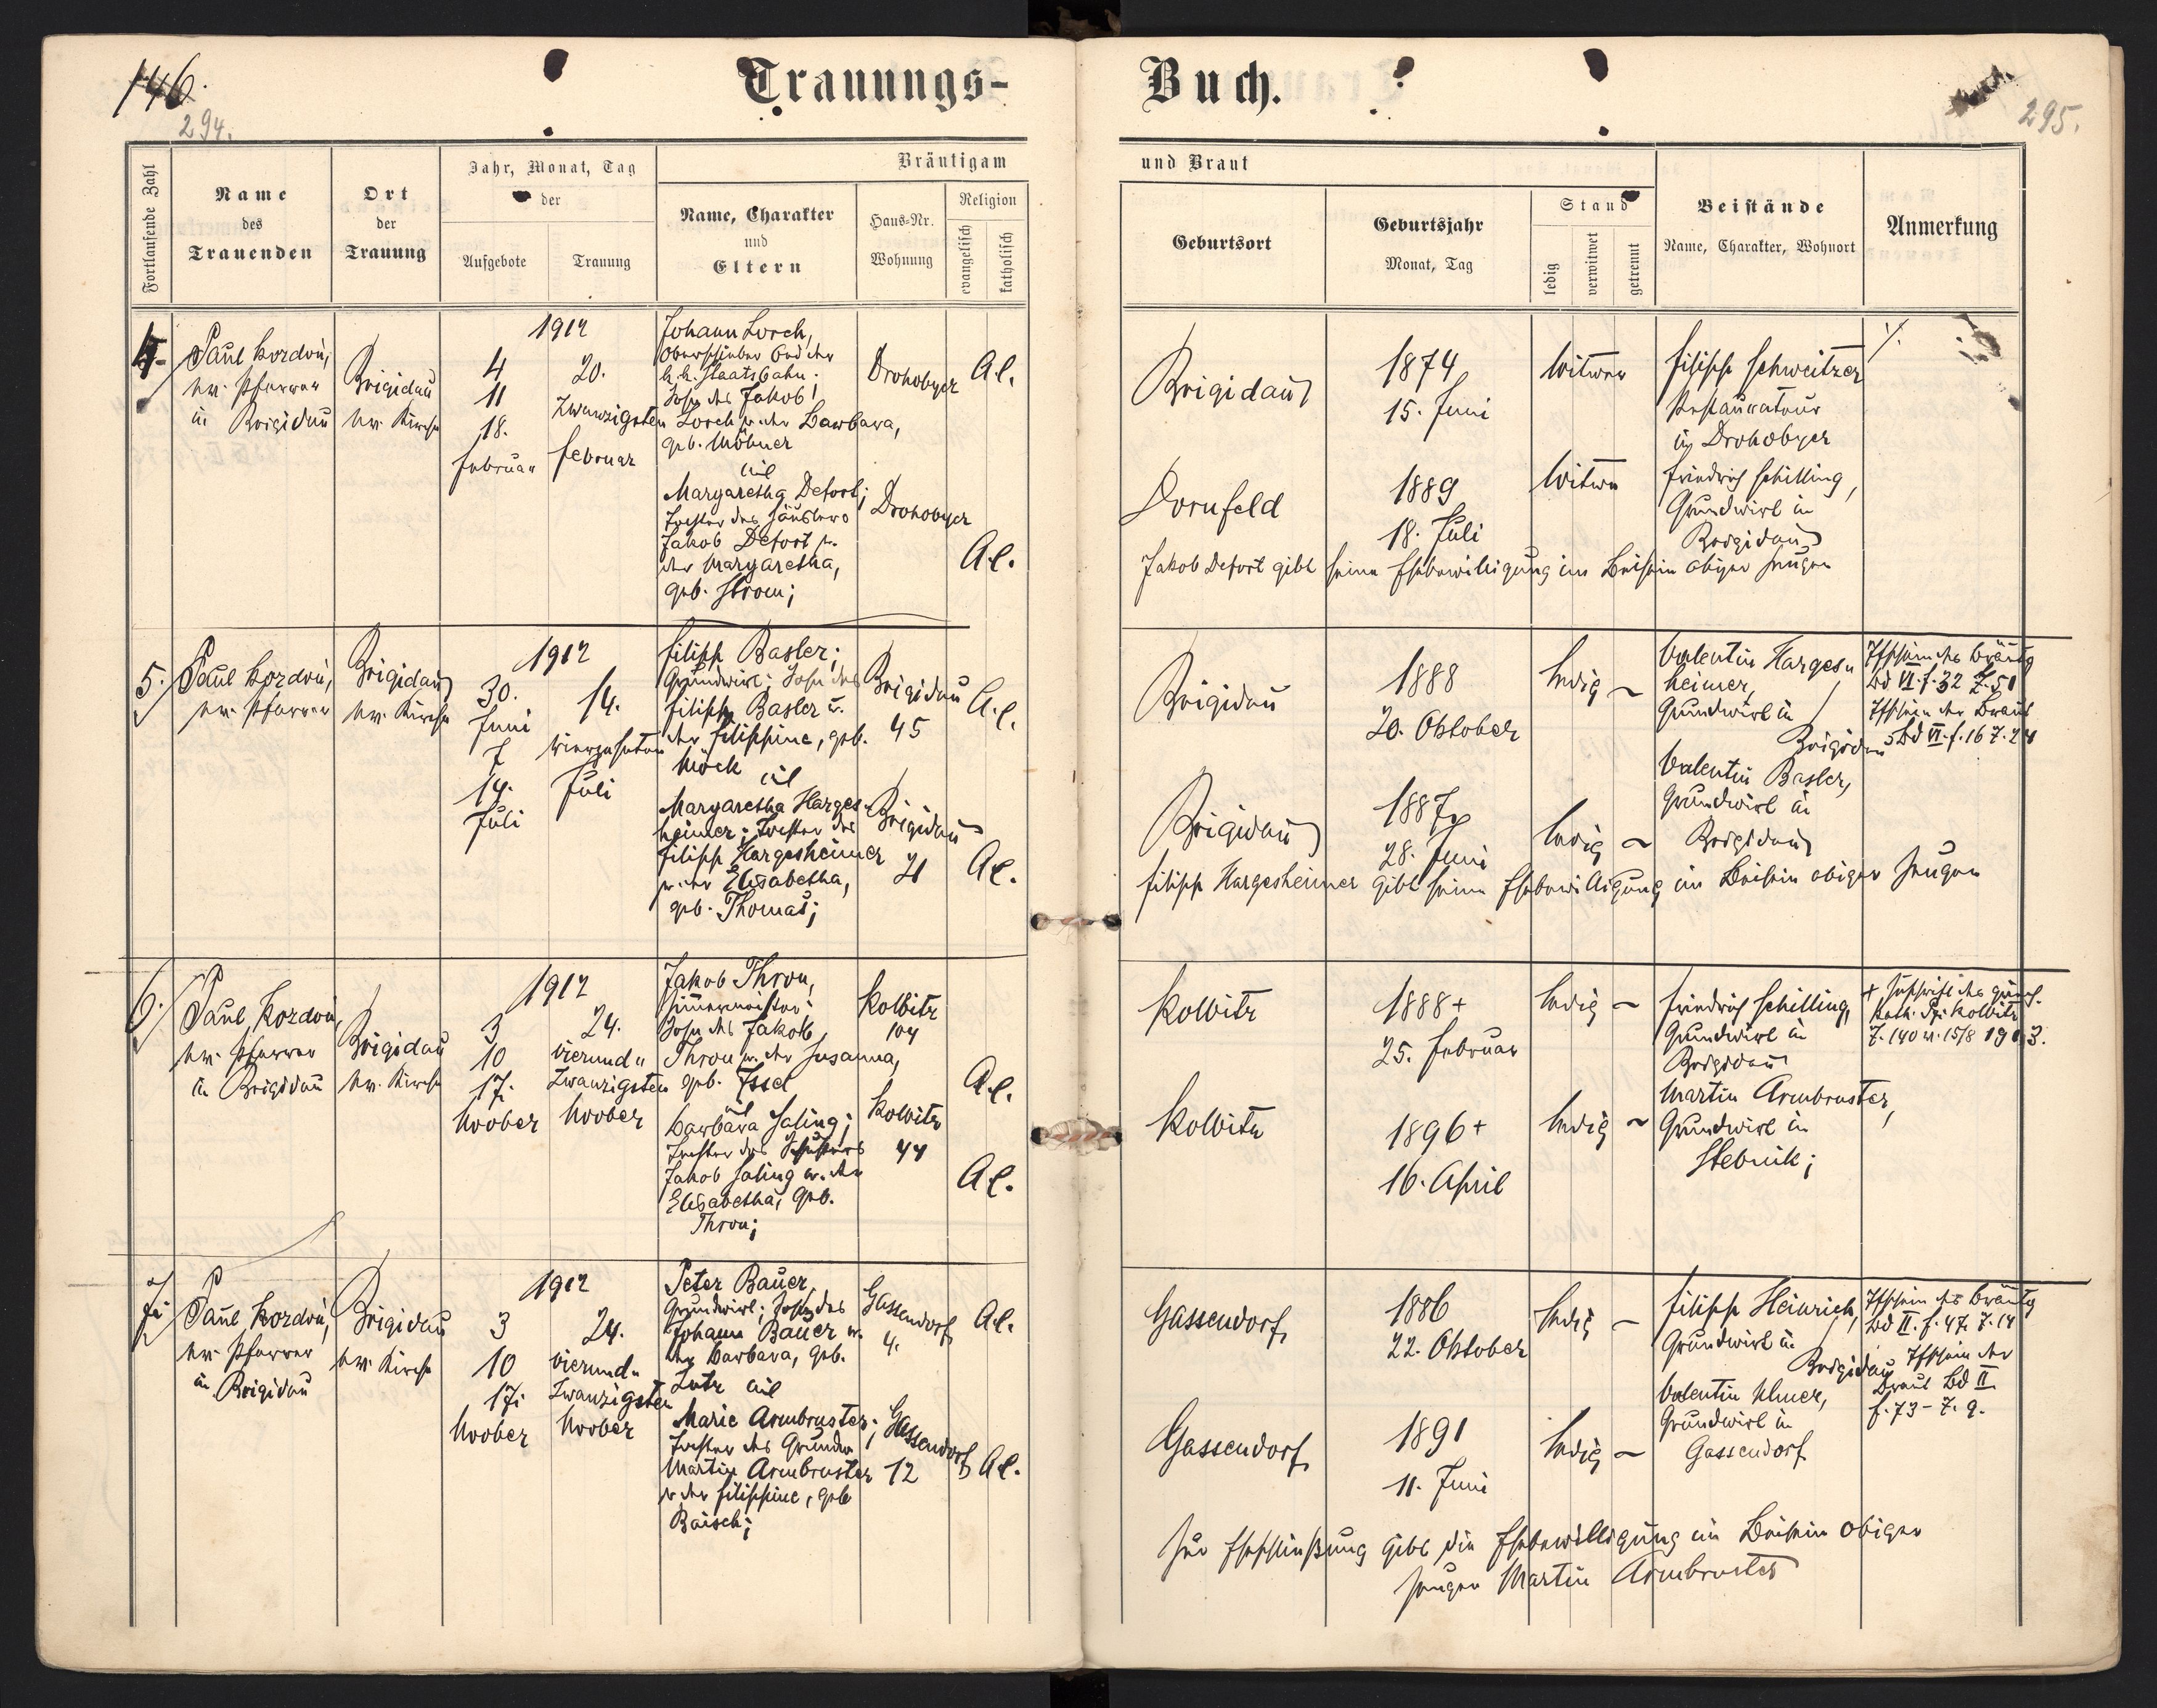 146.
294.
Trauungs-
Buch.
295.
Fortlaufende Zahl
Name
des
Trauenden
Ort
der
Trauung
Jahr, Monat, Tag
der
Aufgebote
Trauung
Bräutigam
Name, Charakter
und
Eltern
Haus-Nr.
Wohnung
Religion
evangelisch
katholisch
und Braut
Geburtsort
Geburtsjahr
Monat, Tag
Stand
ledig
verwitwet
getrennt
Beistände
Name, Charakter, Wohnort
Anmerkung
4.
Paul Kozdoń,
ev. Pfarrer
in Brigidau
Brigidau
ev. Kirche
1912
4
11
18.
Februar
20.
zwanzigsten
Februar
Johann Lorch,
Oberschieber bei der
k. k. Staatsbahn;
Sohn des Jakob
Lorch u. der Barbara,
geb. Möhner
mit
Margaretha Defort;
Tochter des Häuslers
Jakob Defort u.
der Margaretha,
geb. Strom;
Drohobycz
Drohobycz
A. C.
A. C.
Brigidau
1874
15. Juni
Witwer
Filipp Schweitzer
Restaurateur
in Drohobycz
Dornfeld
1889
18. Juli
Witwe
Friedrich Schilling,
Grundwirt in
Brigidau
Jakob Defort gibt seine Ehebewilligung im Beisein obiger Zeugen
5.
Paul Kozdoń,
ev. Pfarrer
Brigidau
ev. Kirche
1912
30.
Juni
7
14.
Juli
14.
vierzehnten
Juli
Filipp Basler;
Grundwirt; Sohn des
Filipp Basler u.
der Filippine, geb.
Möck mit
Margaretha Harges-
heimer; Tochter des
Filipp Hargesheimer
u. der Elisabetha,
geb. Thomas;
Brigidau
45
Brigidau
21
A. C.
A. C.
Brigidau
1888
20. Oktober
ledig
Valentin Harges-
heimer,
Grundwirt in
Brigidau
Tfschein des Bräutg
Bd VI. f. 32 Z. 51
Tfschein der Braut
Bd VI. f. 16 Z. 24
Brigidau
1887
28. Juni
ledig
Valentin Basler,
Grundwirt in
Brigidau
Filipp Hargesheimer gibt seine Ehebewilligung im Beisein obiger Zeugen
6.
Paul Kozdoń,
ev. Pfarrer
in Brigidau
Brigidau
ev. Kirche
1912
3
10
17.
Novber
24.
vierund-
zwanzigsten
Novber
Jakob Thron,
Zimmermeister;
Sohn des Jakob
Thron u. der Susanna,
geb. Issel
mit
Barbara Saling;
Tochter des Schusters
Jakob Saling u. der
Elisabetha, geb.
Thron;
Kolbitz
104
Kolbitz
44
A. C.
A. C.
Kolbitz
1888+
25. Februar
ledig
Friedrich Schilling,
Grundwirt in
Brigidau
+ Zuschrift des griech.
kath. Kolbitz
Z. 140 v. 15/8 1913.
Kolbitz
1896+
16. April
ledig
Martin Armbruster,
Grundwirt in
Stebnik;
7.
Paul Kozdoń,
ev. Pfarrer
in Brigidau
Brigidau
ev. Kirche
1912
3
10
17.
Novber
24.
vierund-
zwanzigsten
Novber
Peter Bauer,
Grundwirt; Sohn des
Johann Bauer u.
der Barbara, geb.
Lutz mit
Marie Armbruster;
Tochter des Grundw
Martin Armbruster
u. der Filippine, geb
Baisch;
Gassendorf
4.
Gassendorf
12
A. C.
A. C.
Gassendorf
1886
22. Oktober
ledig
Filipp Heinrich,
Grundwirt in
Brigidau
Tfschein des Bräutg
Bd II. f. 47. Z. 14
Tfschein der
Braut Bd II
f. 73 - Z. 9.
Gassendorf
1891
11. Juni
ledig
Valentin Ulmer,
Grundwirt in
Gassendorf
Zur Eheschließung gibt die Ehebewilligung im Beisein obiger
Zeugen Martin Armbruster